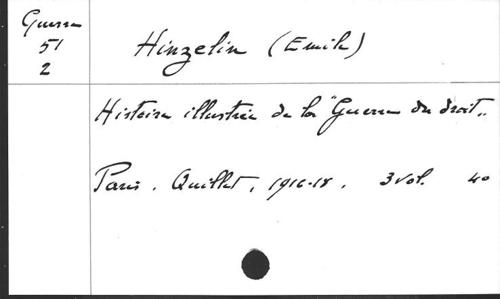 Guerre
51
2
Hinzelin (Emile)
Histoire illustrée de la "Guerre du droit„
Paris. Quillet, 1916-18. 3 vol. 4o